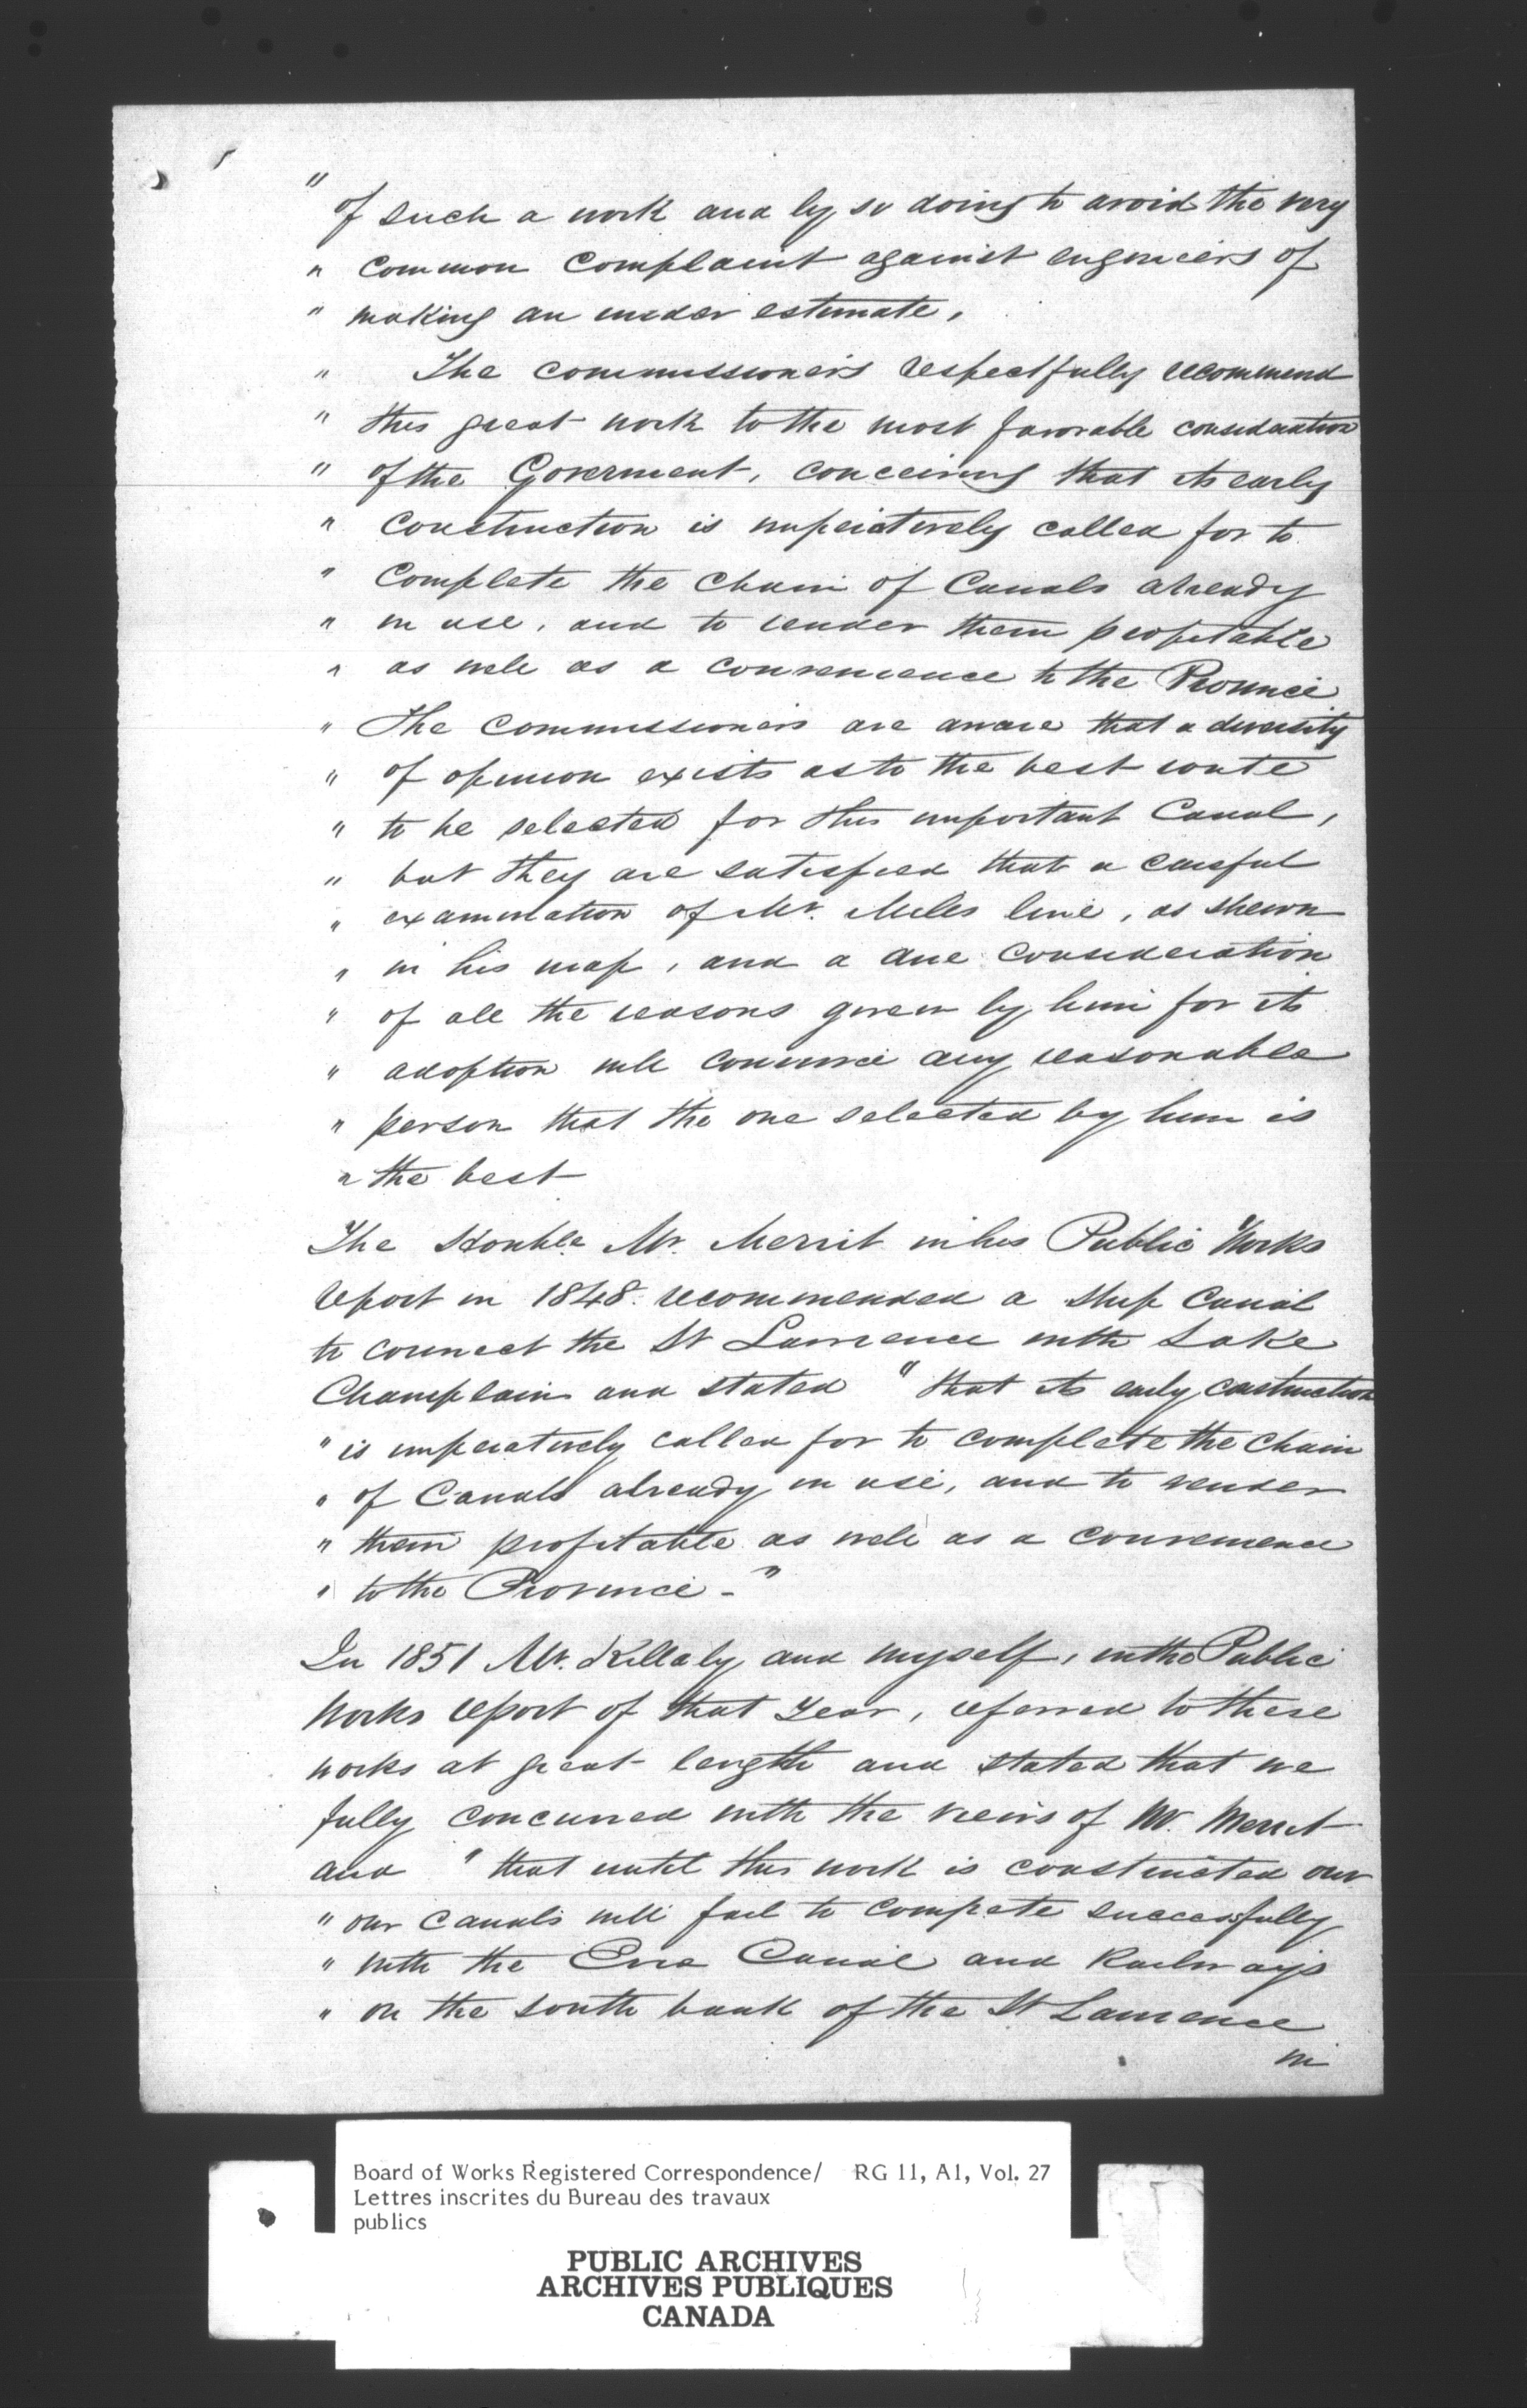 5
" of such a work and by so doing to avoid the very
" common complaint against engineers of
" making an under estimate,
" The commissioners respectfully recommend
" this great work to the most favorable consideration
" of the Goverment, conceiving that its early
" construction is imperatively called for to
" complete the chain of Canals already
" in use, and to render them profitable
" as well as a convenience to the Province
" The commissioners are aware that a diversity
" of opinion exists as to the best route
" to be selected for this important Canal,
" but they are satisfied that a careful
" examination of Mr. Mills line, as shewn
" in his map, and a due consideration
" of all the reasons given by him for its
" adoption will convince any reasonable
" person that the one selected by him is
" the best
The Honble Mr. Merrit in his Public Works
report in 1848. recommended a ship Canal
to connect the St Lawrence with Lake
Champlain and stated " that its early construction
" is imperatively called for to complete the chain
" of Canals already in use, and to render
" them profitable as well as a convenience
" to the Province - "
In 1851 Mr. Killaly and myself, in the Public
Works report of that Year, referred to these
works at great length and stated that we
fully concurred with the views of Mr. Merrit
and " that until this work is constructed our
" our canals will fail to compete successfully
" with the Erie Canal and Railways
" on the south bank of the St Lawrence
in
Board of Works Registered Correspondence/ RG 11, A1, Vol. 27
Lettres inscrites du Bureau des travaux
publics
PUBLIC ARCHIVES
ARCHIVES PUBLIQUES
CANADA